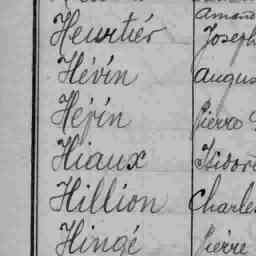 Amand
Heurtiér Joseph
Hévín Augus
Héjín Pierre
Hiaux Isidor
Hillion Charles
Hingé Pierre